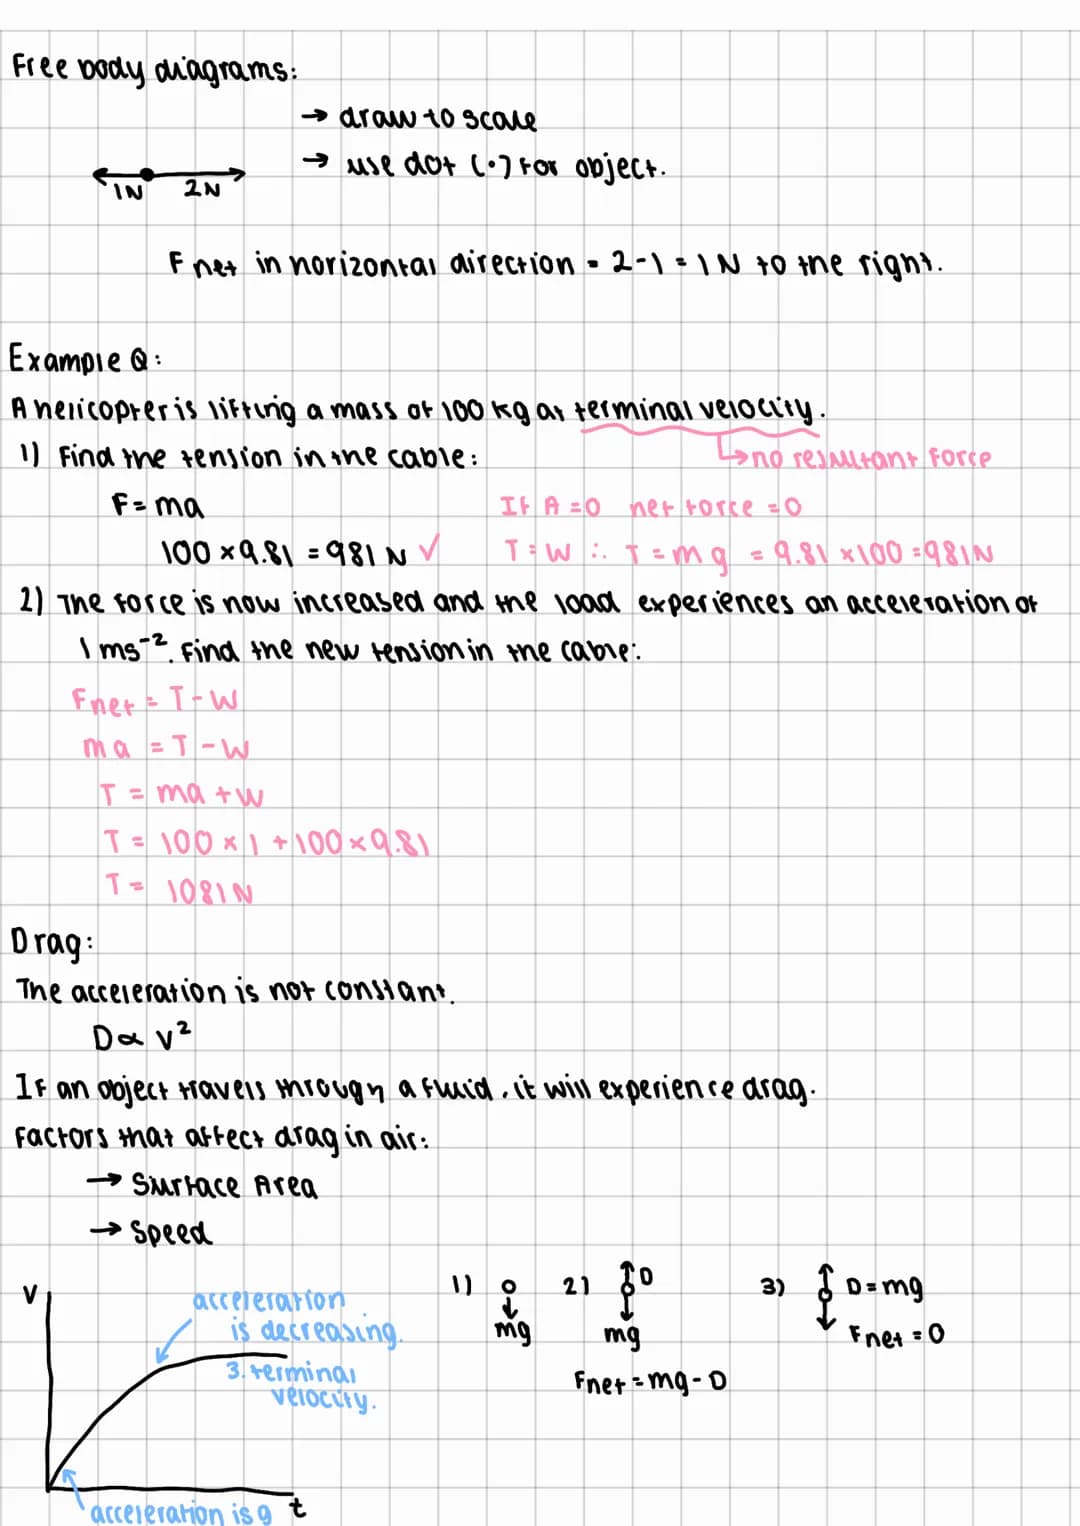 Free body diagrams:
→ draw to scale
→ use dot (•) for object.
1N 2N
F net in horizontal direction = 2-1 = 1N to the right.
Example Q:
A helicopter is lifting a mass of 100 kg at terminal velocity.
1) Find the tension in the cable:
↳ no resultant force
F = ma
If A = 0 net force = 0
100 × 9.81 = 981 N ✓
T = W ∴ T = mg = 9.81 × 100 = 981N
2) The force is now increased and the load experiences an acceleration of
1 ms⁻². Find the new tension in the cable:
Fnet = T - W
ma = T - W
T = ma + W
T = 100 × 1 + 100 × 9.81
T = 1081N
Drag:
The acceleration is not constant.
D ∝ v²
If an object travels through a fluid, it will experience drag.
Factors that affect drag in air:
→ Surface Area
→ Speed
V
acceleration
is decreasing.
3. terminal
velocity.
acceleration is g
t
1)
mg
2) D
mg
Fnet = mg - D
3) D = mg
Fnet = 0